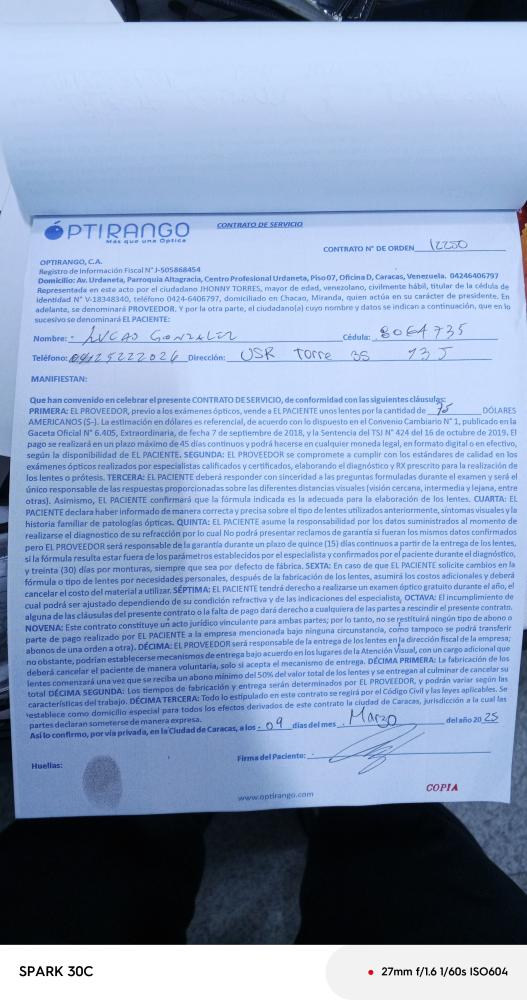 OPTIRANGO
Más que una Óptica
CONTRATO DE SERVICIO
CONTRATO N° DE ORDEN 12250
OPTIRANGO, C.A.
Registro de Información Fiscal N° J-505868454
Domicilio: Av. Urdaneta, Parroquia Altagracia, Centro Profesional Urdaneta, Piso 07, Oficina D, Caracas, Venezuela. 04246406797
Representada en este acto por el ciudadano JHONNY TORRES, mayor de edad, venezolano, civilmente hábil, titular de la cédula de
identidad N° V-18348340, teléfono 0424-6406797, domiciliado en Chacao, Miranda, quien actúa en su carácter de presidente. En
adelante, se denominará PROVEEDOR. Y por la otra parte, el ciudadano(a) cuyo nombre y datos se indican a continuación, que en lo
sucesivo se denominará EL PACIENTE:
Nombre: LUCAS GONZALEZ Cédula: 8064735
Teléfono: 04125222026 Dirección: USR Torre 3S 13J
MANIFIESTAN:
Que han convenido en celebrar el presente CONTRATO DE SERVICIO, de conformidad con las siguientes cláusulas:
PRIMERA: EL PROVEEDOR, previo a los exámenes ópticos, vende a EL PACIENTE unos lentes por la cantidad de 95 DÓLARES
AMERICANOS ($-). La estimación en dólares es referencial, de acuerdo con lo dispuesto en el Convenio Cambiario N° 1, publicado en la
Gaceta Oficial N° 6.405, Extraordinaria, de fecha 7 de septiembre de 2018, y la Sentencia del TSJ N° 424 del 16 de octubre de 2019. El
pago se realizará en un plazo máximo de 45 días continuos y podrá hacerse en cualquier moneda legal, en formato digital o en efectivo,
según la disponibilidad de EL PACIENTE. SEGUNDA: EL PROVEEDOR se compromete a cumplir con los estándares de calidad en los
exámenes ópticos realizados por especialistas calificados y certificados, elaborando el diagnóstico y RX prescrito para la realización de
los lentes o prótesis. TERCERA: EL PACIENTE deberá responder con sinceridad a las preguntas formuladas durante el examen y será el
único responsable de las respuestas proporcionadas sobre las diferentes distancias visuales (visión cercana, intermedia y lejana, entre
otras). Asimismo, EL PACIENTE confirmará que la fórmula indicada es la adecuada para la elaboración de los lentes. CUARTA: EL
PACIENTE declara haber informado de manera correcta y precisa sobre el tipo de lentes utilizados anteriormente, síntomas visuales y la
historia familiar de patologías ópticas. QUINTA: EL PACIENTE asume la responsabilidad por los datos suministrados al momento de
realizarse el diagnostico de su refracción por lo cual No podrá presentar reclamos de garantía si fueran los mismos datos confirmados
pero EL PROVEEDOR será responsable de la garantía durante un plazo de quince (15) días continuos a partir de la entrega de los lentes,
si la fórmula resulta estar fuera de los parámetros establecidos por el especialista y confirmados por el paciente durante el diagnóstico,
y treinta (30) días por monturas, siempre que sea por defecto de fábrica. SEXTA: En caso de que EL PACIENTE solicite cambios en la
fórmula o tipo de lentes por necesidades personales, después de la fabricación de los lentes, asumirá los costos adicionales y deberá
cancelar el costo del material a utilizar. SÉPTIMA: EL PACIENTE tendrá derecho a realizarse un examen óptico gratuito durante el año, el
cual podrá ser ajustado dependiendo de su condición refractiva y de las indicaciones del especialista, OCTAVA: El incumplimiento de
alguna de las cláusulas del presente contrato o la falta de pago dará derecho a cualquiera de las partes a rescindir el presente contrato.
NOVENA: Este contrato constituye un acto jurídico vinculante para ambas partes; por lo tanto, no se restituirá ningún tipo de abono o
parte de pago realizado por EL PACIENTE a la empresa mencionada bajo ninguna circunstancia, como tampoco se podrá transferir
abonos de una orden a otra). DÉCIMA: EL PROVEEDOR será responsable de la entrega de los lentes en la dirección fiscal de la empresa;
no obstante, podrían establecerse mecanismos de entrega bajo acuerdo en los lugares de la Atención Visual, con un cargo adicional que
deberá cancelar el paciente de manera voluntaria, solo si acepta el mecanismo de entrega. DÉCIMA PRIMERA: La fabricación de los
lentes comenzará una vez que se reciba un abono mínimo del 50% del valor total de los lentes y se entregan al culminar de cancelar su
total DÉCIMA SEGUNDA: Los tiempos de fabricación y entrega serán determinados por EL PROVEEDOR, y podrán variar según las
características del trabajo. DÉCIMA TERCERA: Todo lo estipulado en este contrato se regirá por el Código Civil y las leyes aplicables. Se
establece como domicilio especial para todos los efectos derivados de este contrato la ciudad de Caracas, jurisdicción a la cual las
partes declaran someterse de manera expresa.
Así lo confirmo, por vía privada, en la Ciudad de Caracas, a los 09 días del mes Marzo del año 20 25
Firma del Paciente:
Huellas:
COPIA
www.optirango.com
SPARK 30C
27mm f/1.6 1/60s ISO604